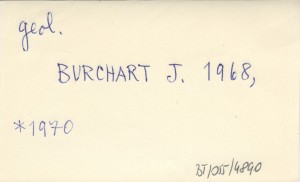 geol.
BURCHART J. 1968,
*1970
BJ/015/4890